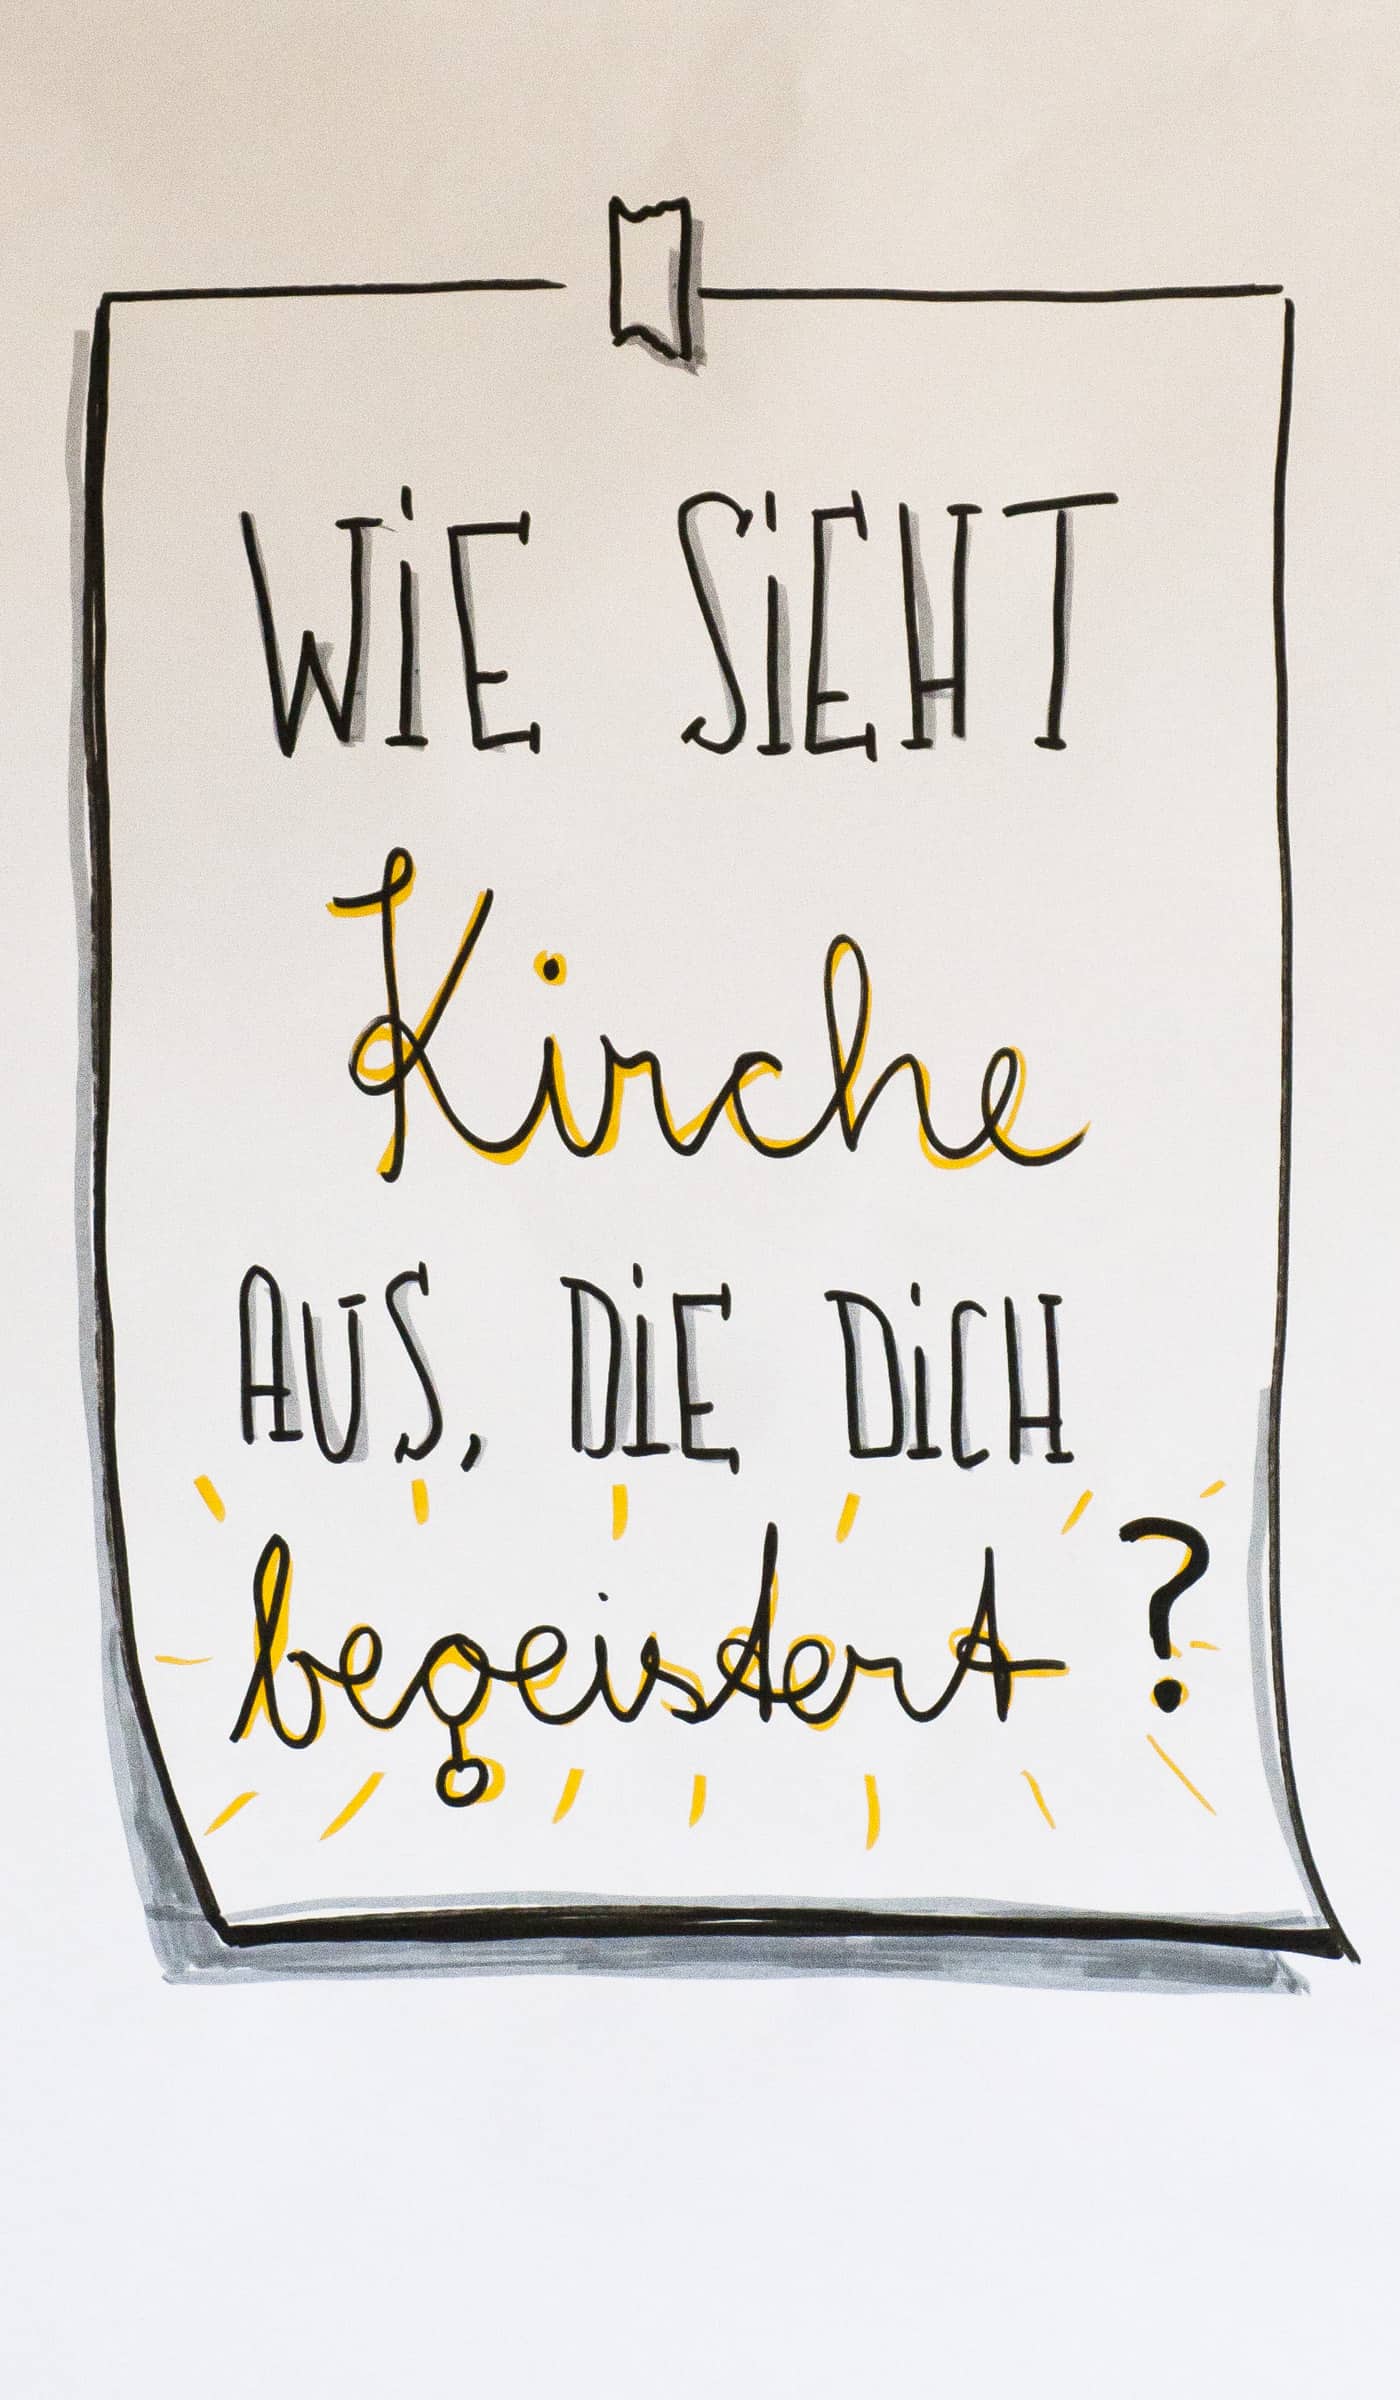 WiE SiEHT
Kirche
AUS, DiE DiCH
begeistert?